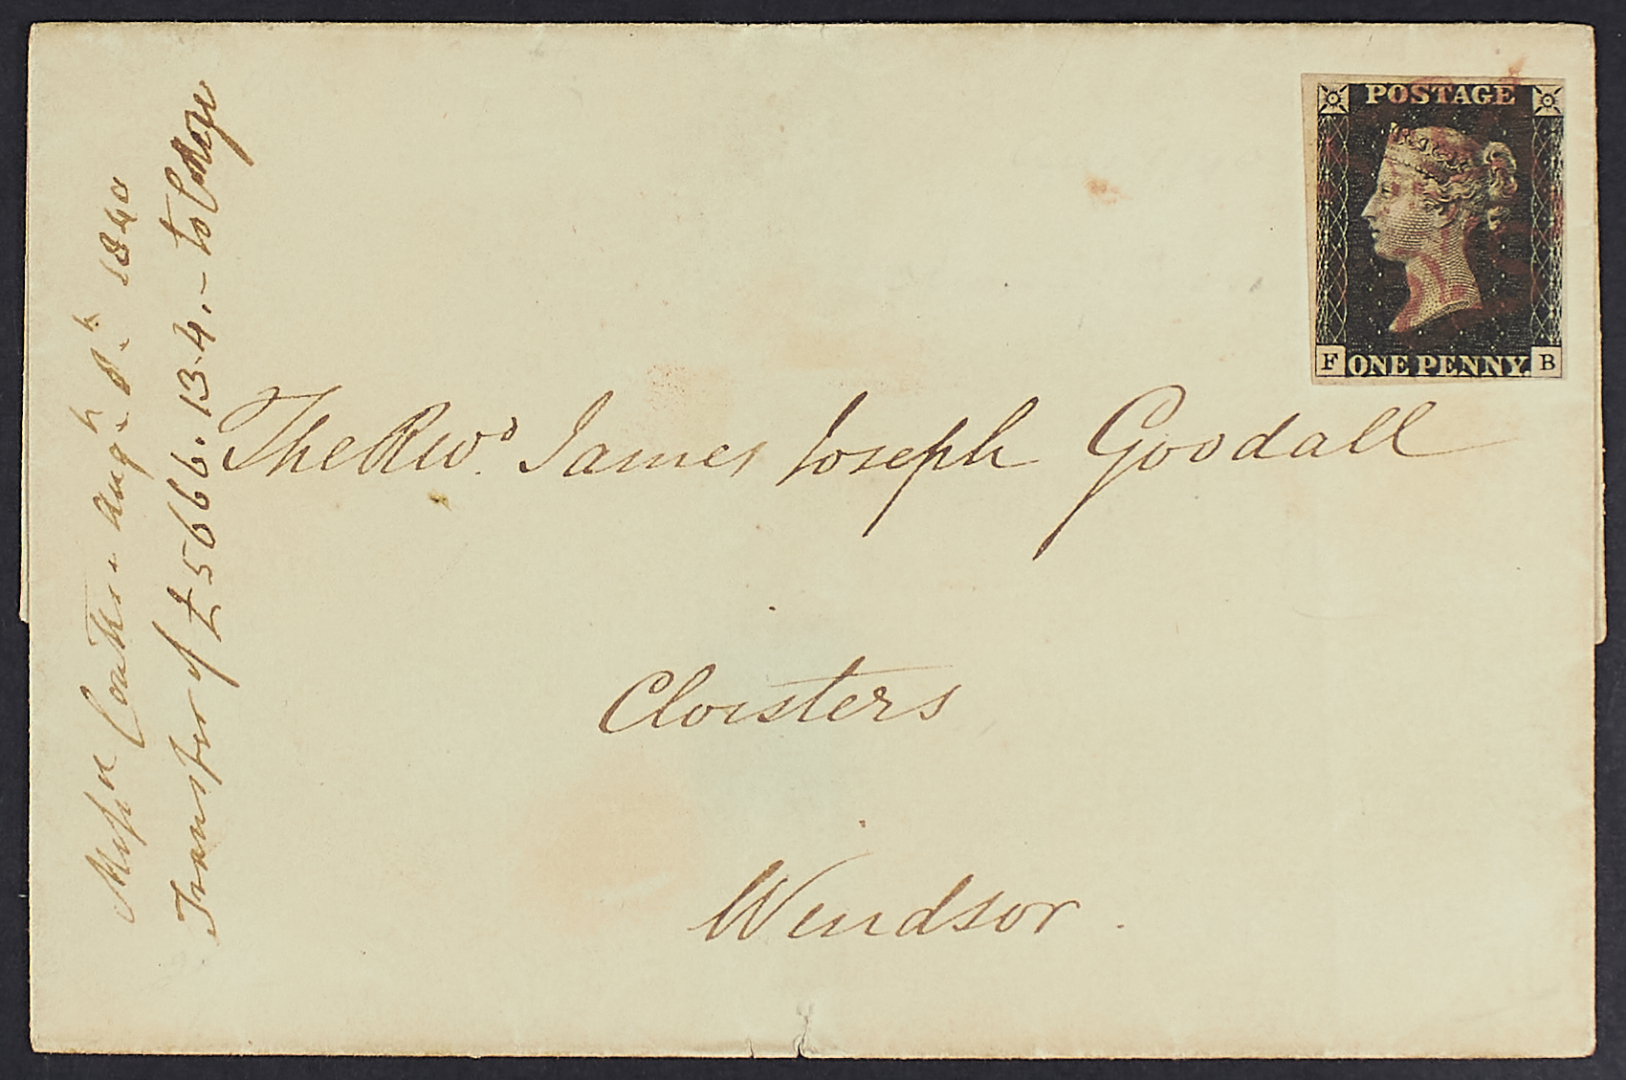 POSTAGE
F ONE PENNY. B
The Revd. James Joseph Goodall
Cloisters
Windsor.
Messrs Coutts. Augt. 8th. 1840
Transfer of £5666.13.4.- to College